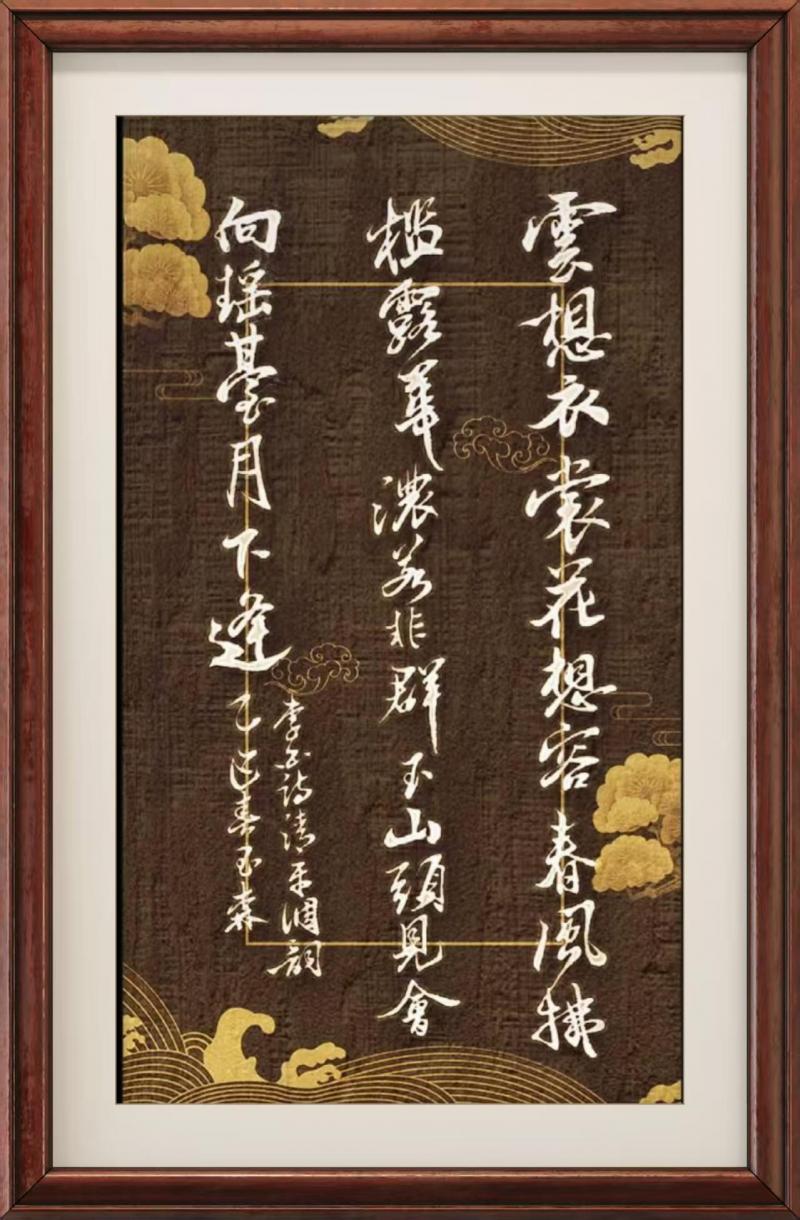 雲想衣裳花想容春風拂
檻露華濃若非群玉山頭見會
向瑤臺月下逢
李白詩清平調詞
乙巳春玉森